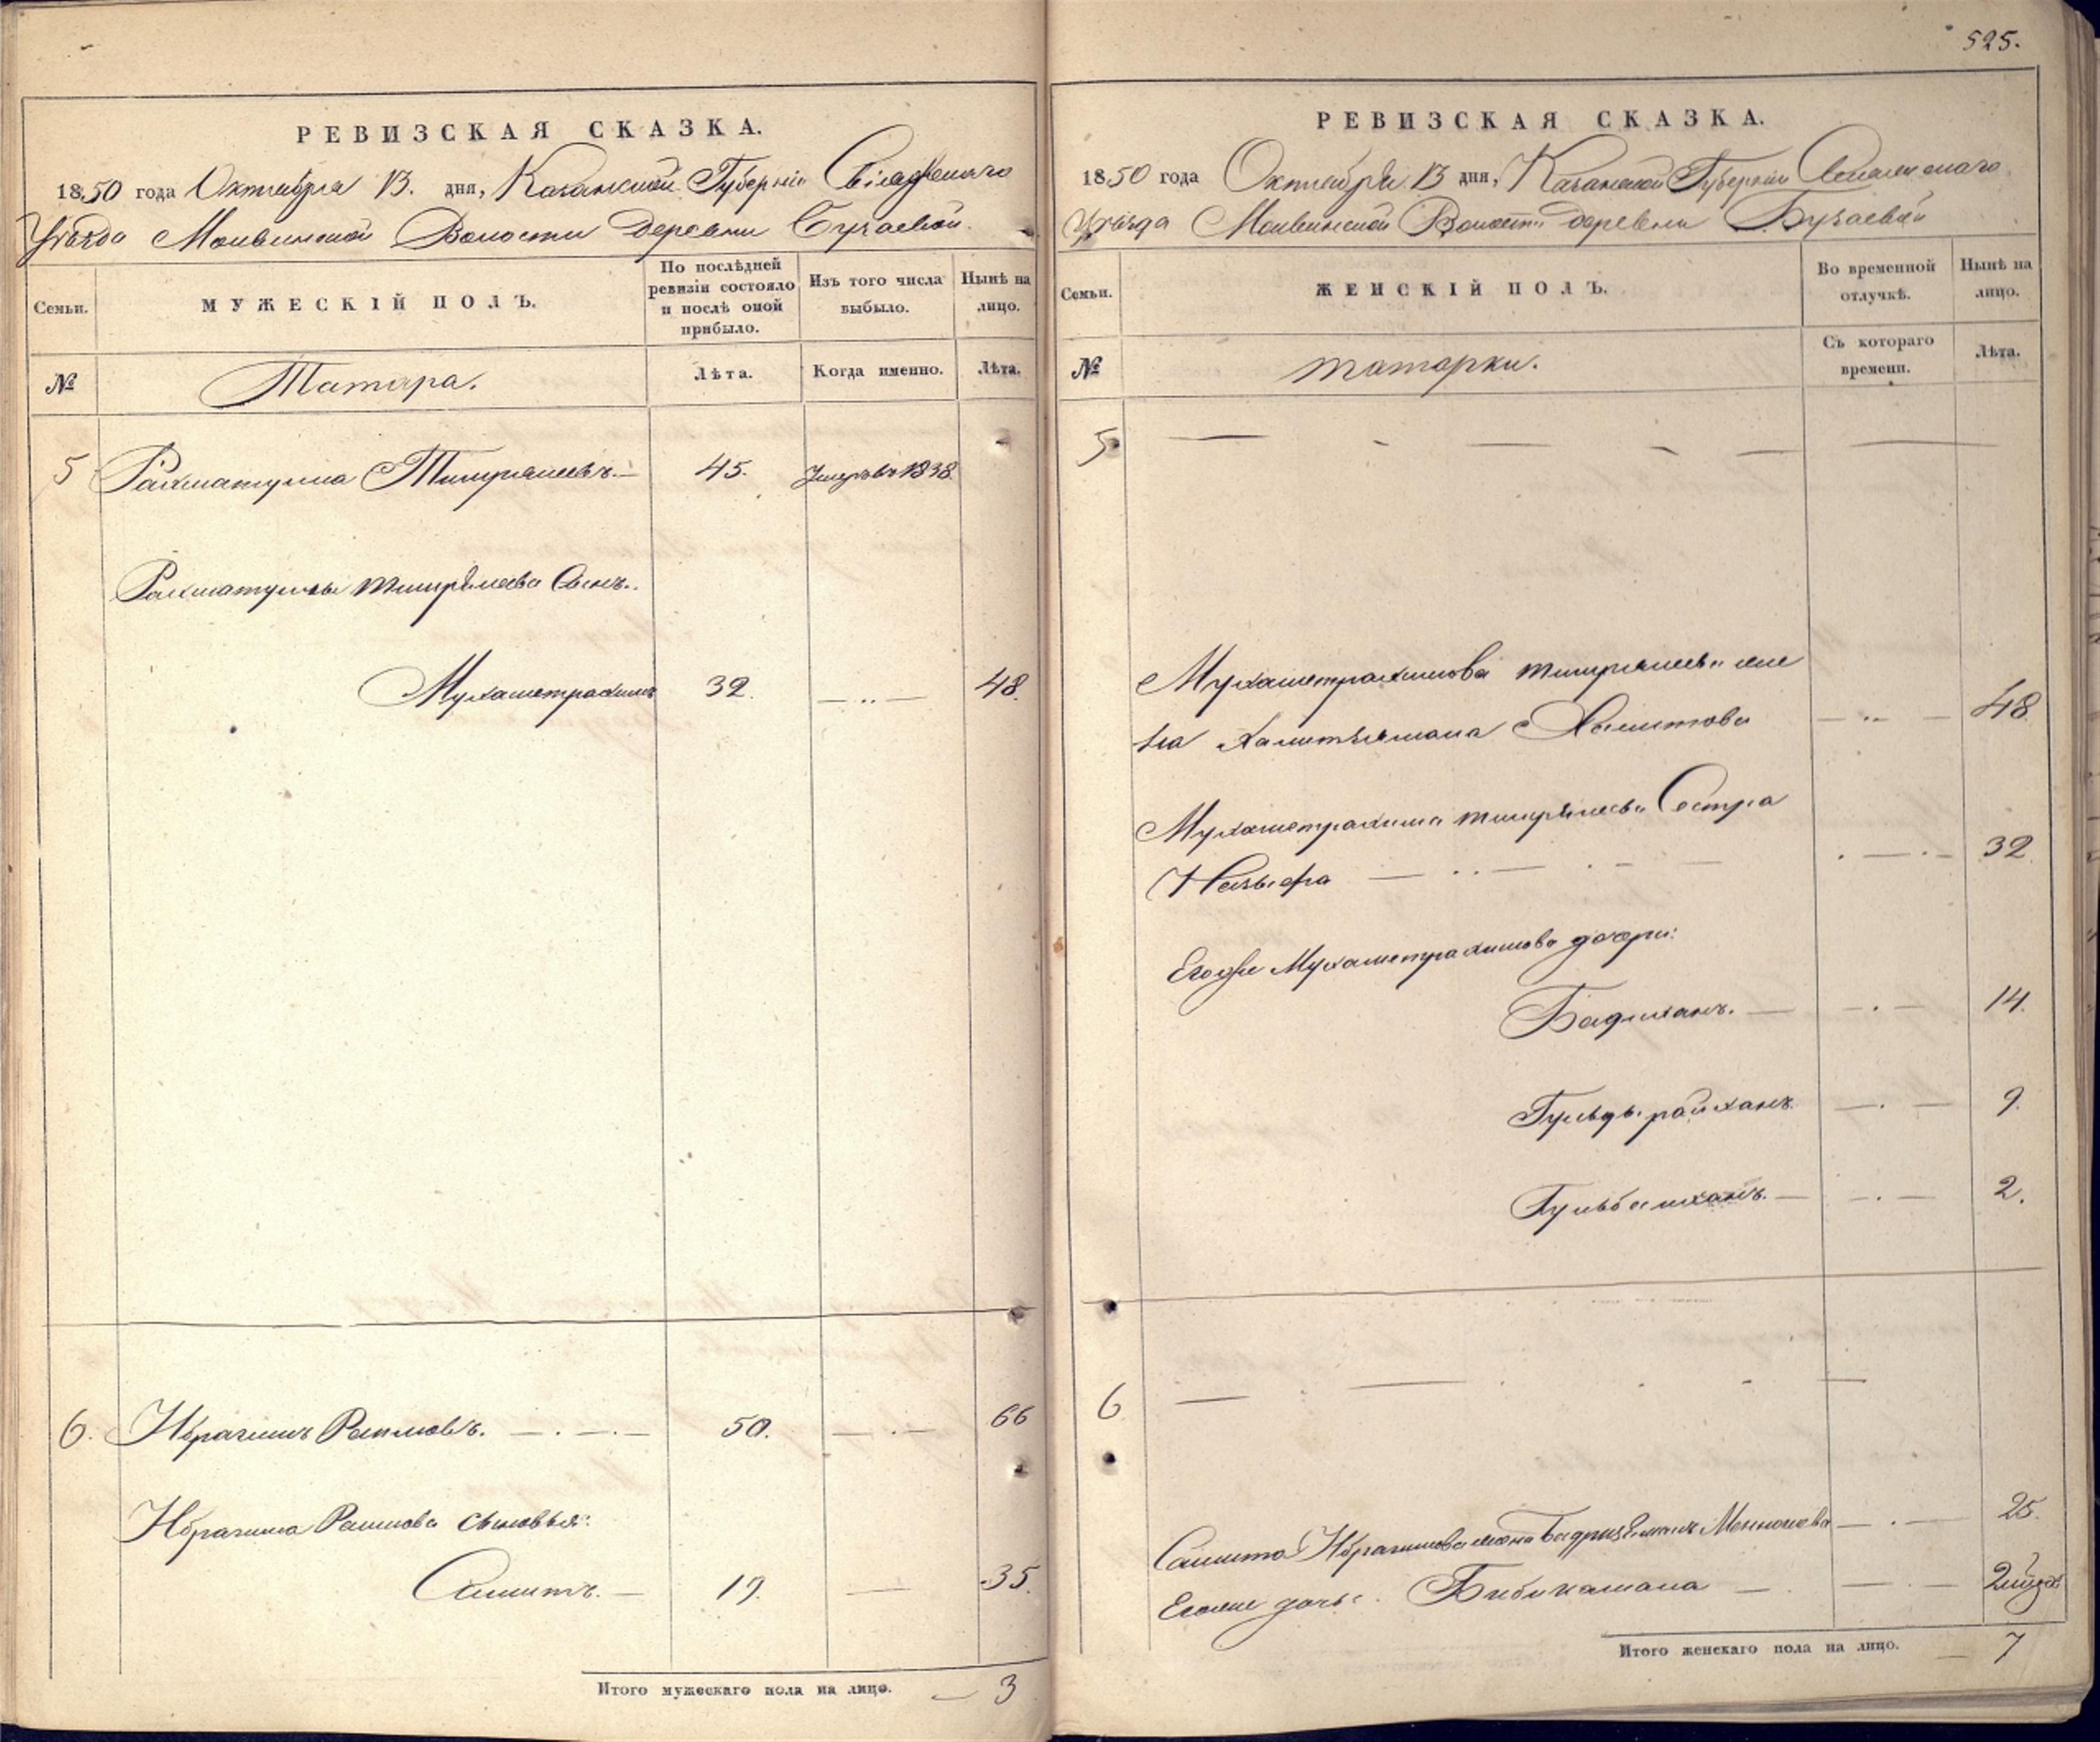 РЕВИЗСКАЯ СКАЗКА.
1850 года Октября 13. дня, Казанской Губерніи Свіяжскаго
Уѣзда Молвинской Волости деревни Бузаевой.
Семьи.
МУЖЕСКІЙ ПОЛЪ.
По послѣдней ревизіи состояло и послѣ оной прибыло.
Изъ того числа выбыло.
Нынѣ на лицо.
№
Татара.
Лѣта.
Когда именно.
Лѣта.
5 Рахматулла Тимиряшевъ. — 45. Умеръ въ 1838
Рахматуллы Сынъ.
Мухаметрахимъ 32. — 48.
6. Ибрагимъ 50. — 66
Ибрагима сыновья:
Самитъ. — 19. — 35.
Итого мужескаго пола на лицо. — 3
525.
РЕВИЗСКАЯ СКАЗКА.
1850 года Октября 13 дня, Казанской Губерніи
Уѣзда Молвинской Волости деревни Бузаевой
Семьи.
ЖЕНСКІЙ ПОЛЪ.
Во временной отлучкѣ.
Нынѣ на лицо.
№
татарки.
Съ котораго времени.
Лѣта.
5
Мухаметрахимова же
на — 48
Мухаметрахима Сестра
— 32
Егоже Мухаметрахимова дочери:
Бадиханъ. — 14.
Гульдырайханъ — 9.
— 2.
6
Самита Ибрагимова жена — 25.
Егоже дочь: Бибикамала — 2
Итого женскаго пола на лицо. — 7